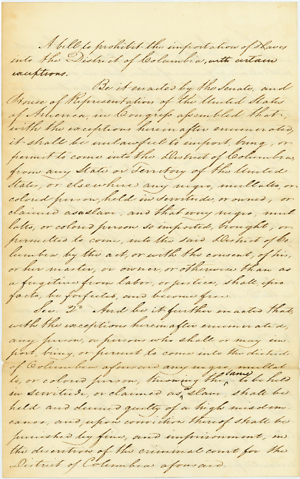 A bill to prohibit the importation of slaves
into the District of Columbia, with certain
exceptions.
Be it enacted by the Senate, and
House of Representatives of the United States
of America, in Congress assembled that,
with the exceptions herein after enumerated,
it shall be unlawful to import, bring, or
permit to come into the District of Columbia
from any State or Territory of the United
States, or elsewhere any negro, mullatto, or
colored person, held in servitude, or owned, or
claimed as a slave, and that every negro, mul
latto, or colored person so imported, brought, or
permitted to come, into the said District of Co
lumbia by the act, or with the consent, of his,
or her master, or owner, or otherwise than as
a fugitive from labor, or justice, shall ipso
facto, be forfeited, and become free.
Sec. 2d. And be it further enacted that,
with the exceptions herein after enumerated,
any person, or persons who shall or may im
port, bring, or permit to come into the district
of Columbia aforesaid any negro, mullat
to, or colored person, knowing the same to be held
in servitude, or claimed as a slave, shall be
held and deemed guilty of a high misdem
eanor, and, upon conviction thereof shall be
punished by fine, and imprisonment, in
the discretion of the criminal court for the
District of Columbia aforesaid.